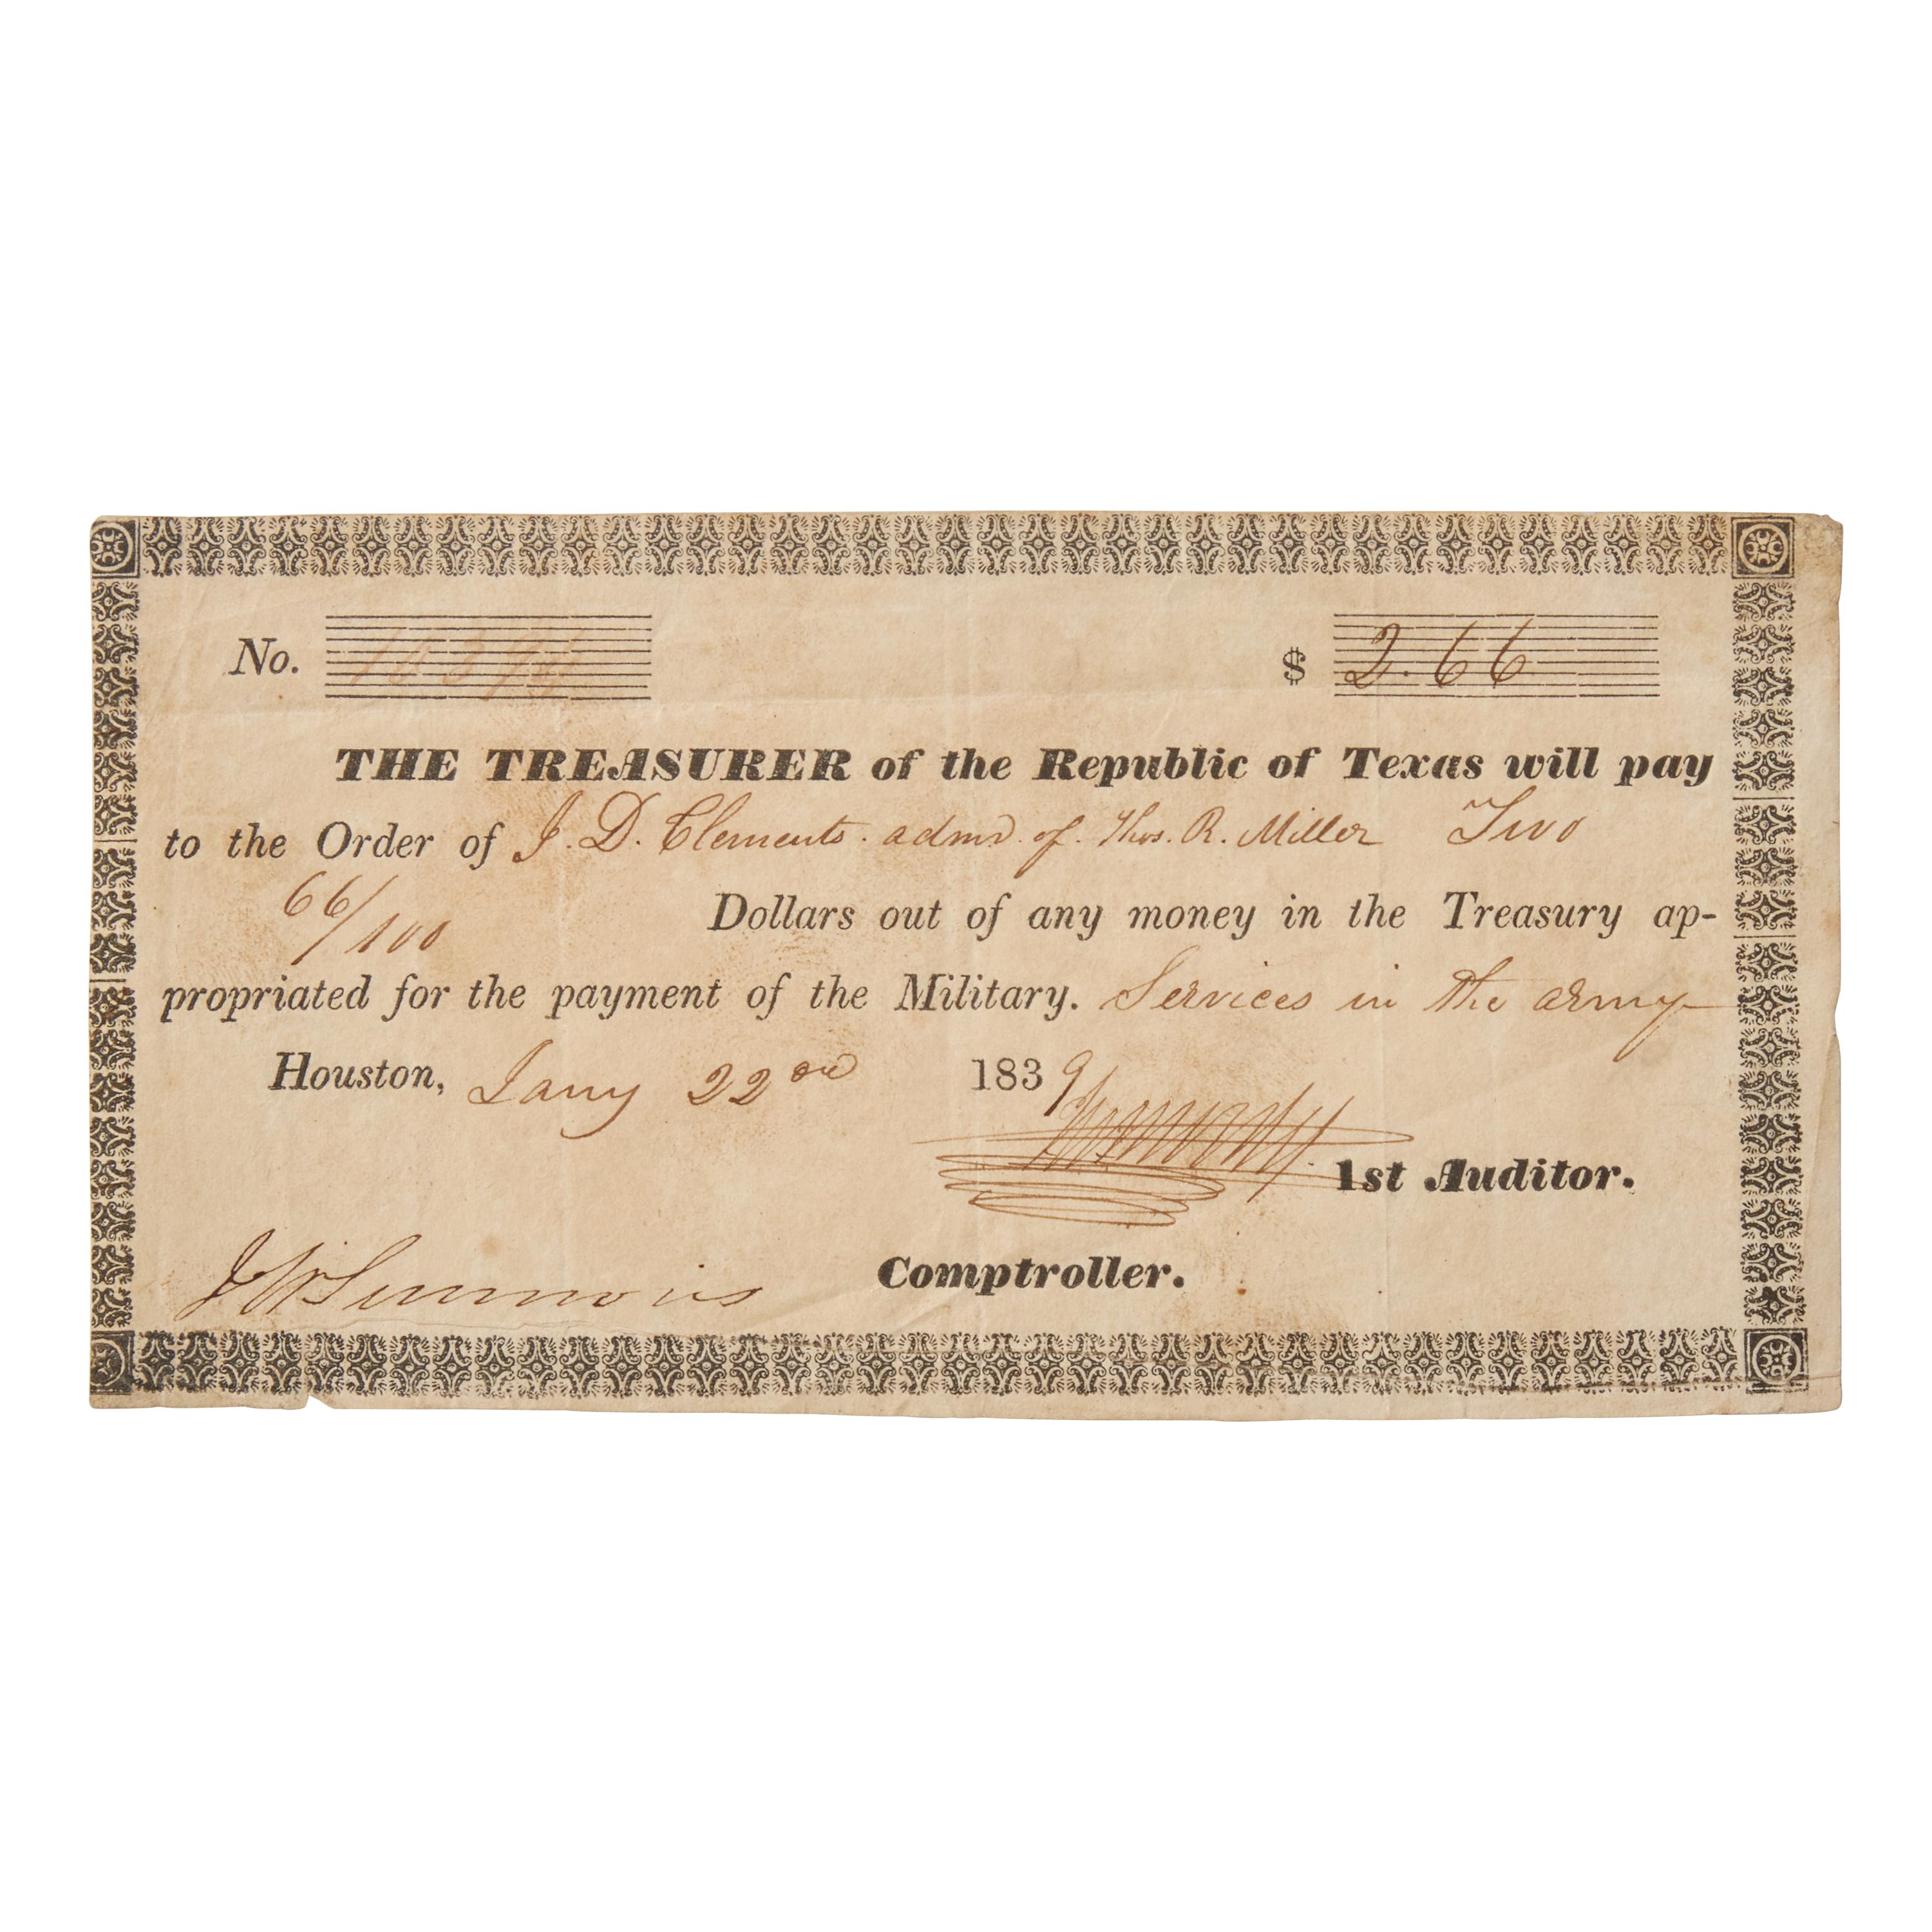 No. $ 2.66
THE TREASURER of the Republic of Texas will pay
to the Order of J. D. Clements. admr. of. Thos. R. Miller Two
66/100 Dollars out of any money in the Treasury ap-
propriated for the payment of the Military. Services in the army
Houston, Jany 22nd 1839
1st Auditor.
J W Simmons Comptroller.